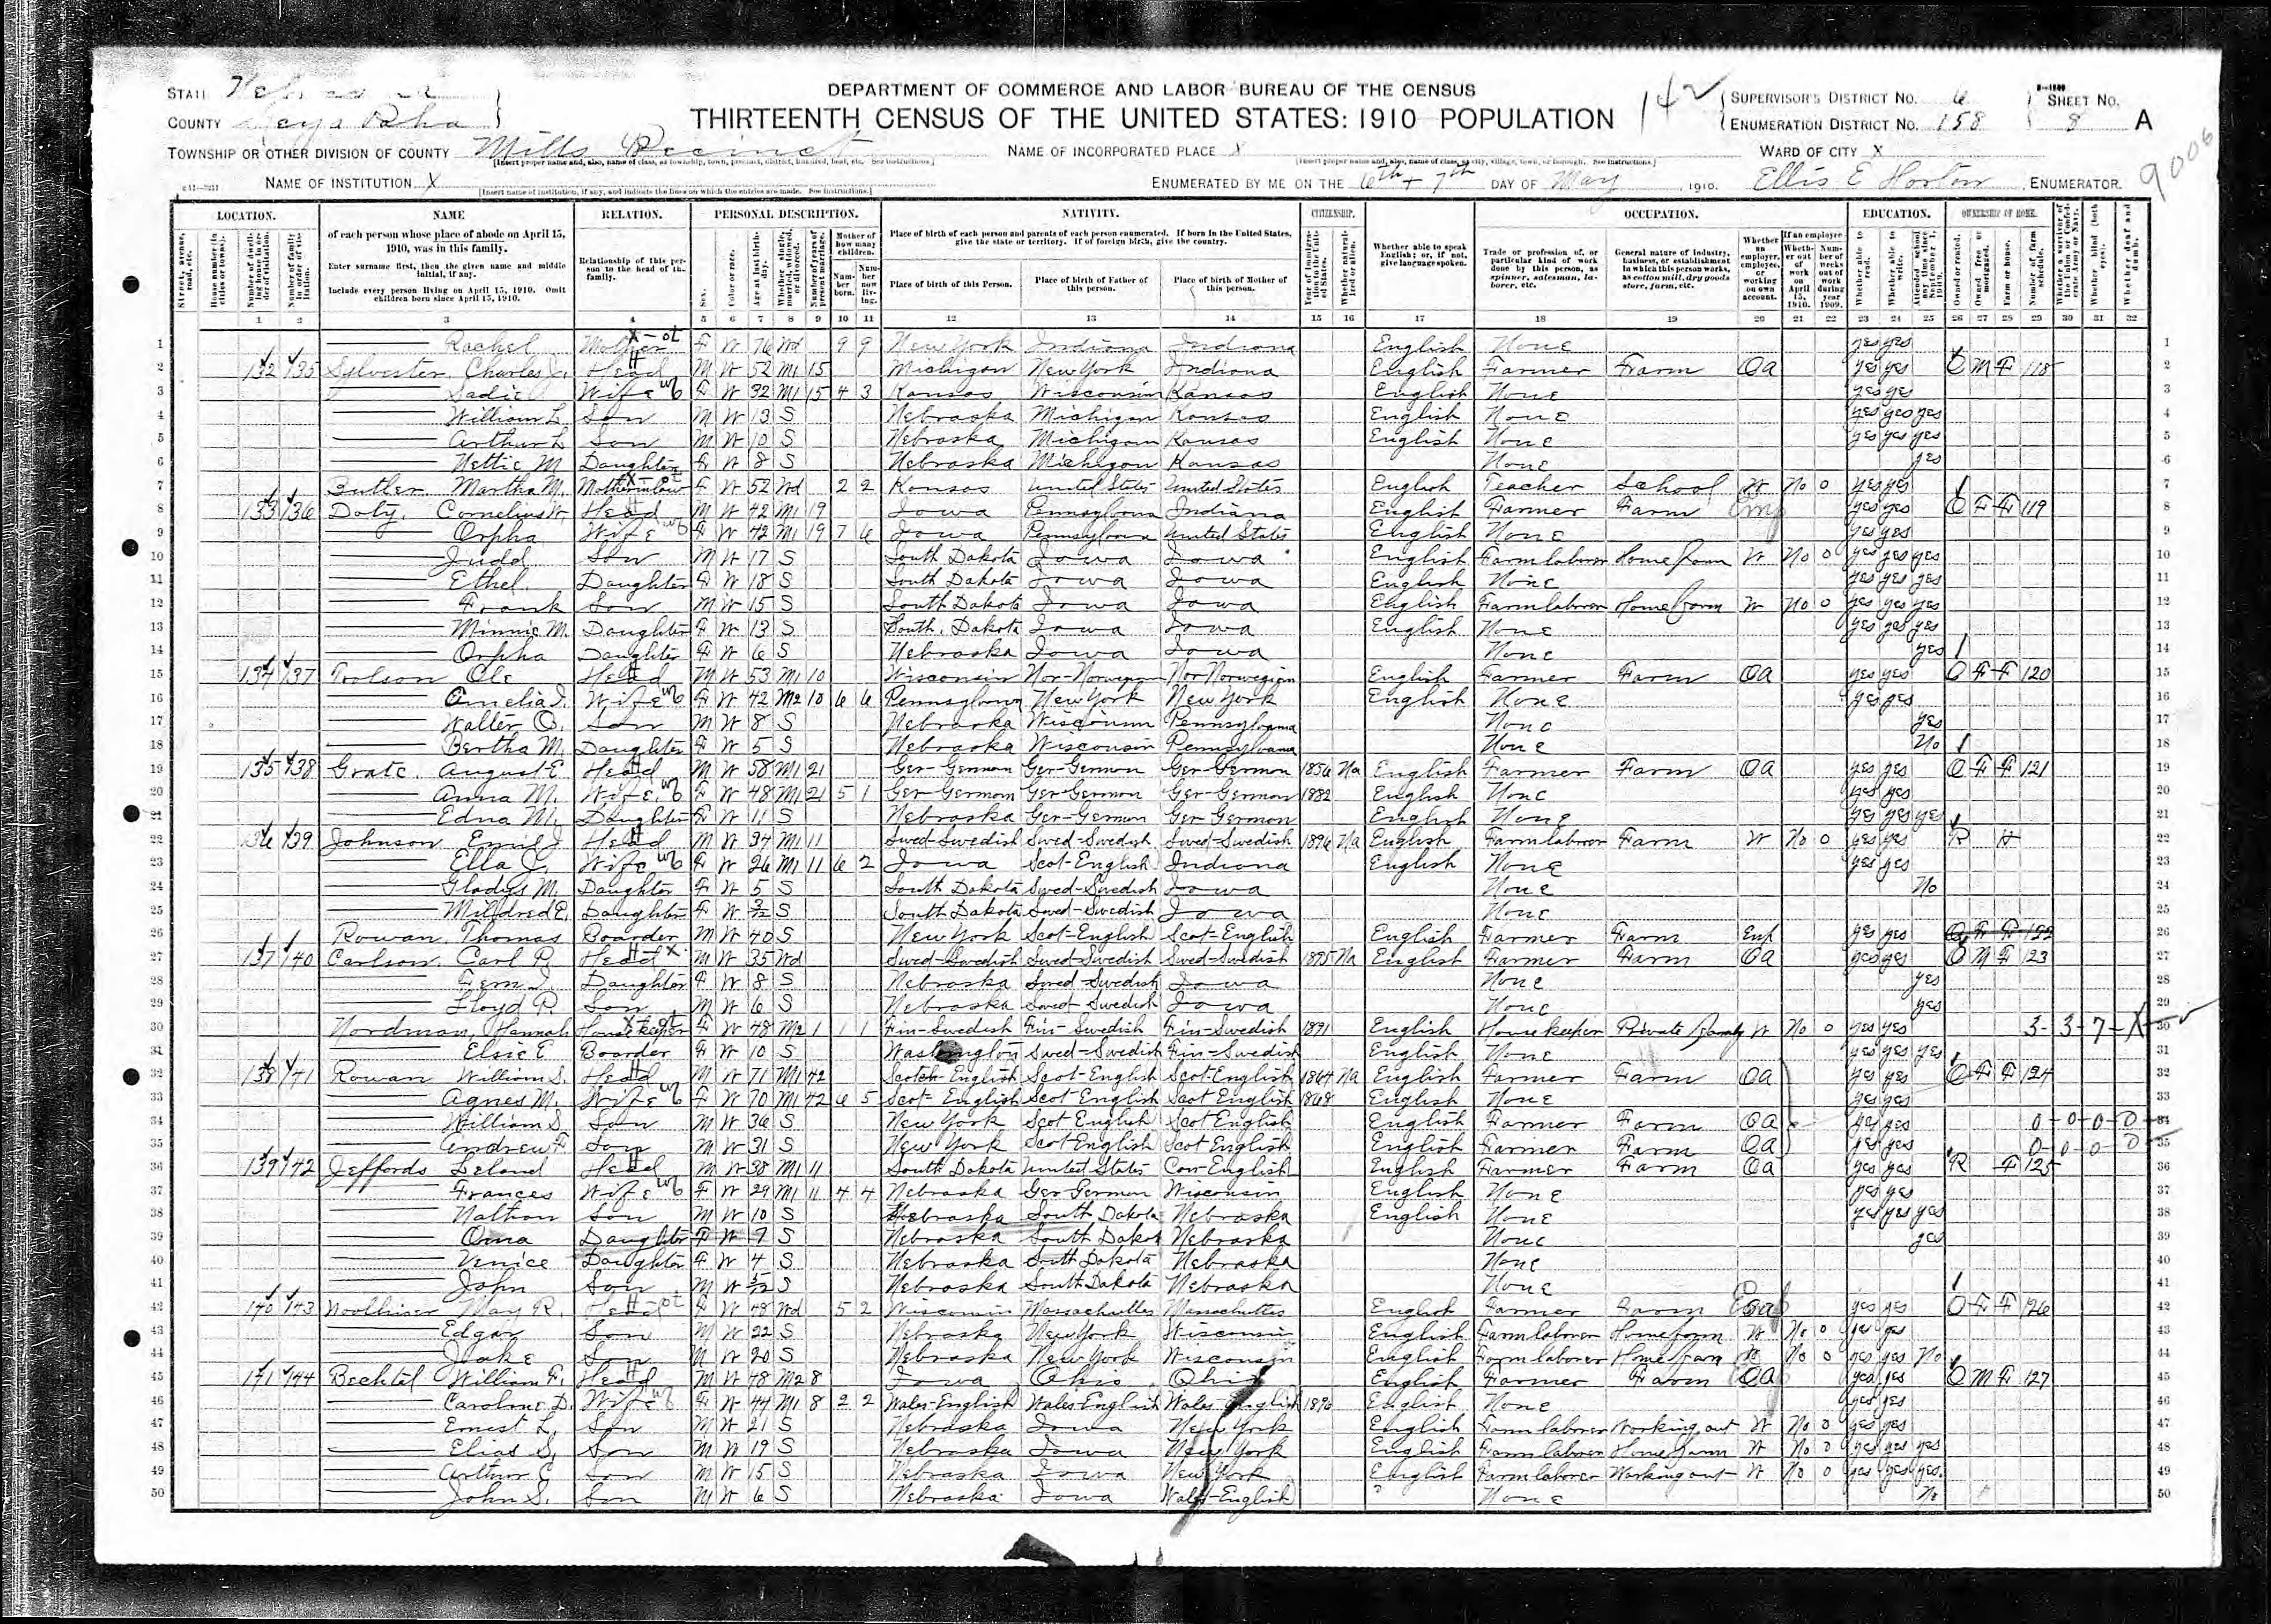 DEPARTMENT OF COMMERCE AND LABOR BUREAU OF THE CENSUS
THIRTEENTH CENSUS OF THE UNITED STATES: 1910 POPULATION
STATE Nebraska
COUNTY Keya Paha
TOWNSHIP OR OTHER DIVISION OF COUNTY Mills Precinct
NAME OF INSTITUTION X
NAME OF INCORPORATED PLACE X
ENUMERATED BY ME ON THE 6th + 7th DAY OF May, 1910. Ellis E Horton, ENUMERATOR.
142
SUPERVISOR'S DISTRICT NO. 6
ENUMERATION DISTRICT NO. 158
SHEET NO. 8 A
WARD OF CITY X
9006
LOCATION. NAME RELATION. PERSONAL DESCRIPTION. NATIVITY. CITIZENSHIP. OCCUPATION. EDUCATION. OWNERSHIP OF HOME.
1 Rachel Mother F W 76 Wd 9 9 New York Indiana Indiana English None yes yes
2 132 135 Sylvester, Charles Head M W 52 M1 15 Michigan New York Indiana English Farmer Farm OA yes yes O M F 118
3 Sadie Wife F W 32 M1 15 4 3 Kansas Wisconsin Kansas English None yes yes
4 William L Son M W 13 S Nebraska Michigan Kansas English None yes yes yes
5 Arthur L Son M W 10 S Nebraska Michigan Kansas English None yes yes yes
6 Nettie M Daughter F W 8 S Nebraska Michigan Kansas None yes
7 Butler Martha M. Motherinlaw F W 52 Wd 2 2 Kansas United States United States English Teacher School W No 0 yes yes
8 133 136 Doty, Cornelius W, Head M W 42 M1 19 Iowa Pennsylvania Indiana English Farmer Farm Emp yes yes O F F 119
9 Orpha Wife F W 42 M1 19 7 6 Iowa Pennsylvania United States English None yes yes
10 Judd Son M W 17 S South Dakota Iowa Iowa English Farm laborer Home farm W No 0 yes yes yes
11 Ethel Daughter F W 18 S South Dakota Iowa Iowa English None yes yes yes
12 Frank Son M W 15 S South Dakota Iowa Iowa English Farm laborer Home farm W No 0 yes yes yes
13 Minnie M. Daughter F W 13 S South Dakota Iowa Iowa English None yes yes yes
14 Orpha Daughter F W 6 S Nebraska Iowa Iowa None yes
15 134 137 Toolson Ole Head M W 53 M1 10 Wisconsin Nor-Norwegian Nor Norwegian English Farmer Farm OA yes yes O F F 120
16 Amelia J. Wife F W 42 M2 10 6 6 Pennsylvania New York New York English None yes yes
17 Walter O. Son M W 8 S Nebraska Wisconsin Pennsylvania None yes
18 Bertha M. Daughter F W 5 S Nebraska Wisconsin Pennsylvania None No
19 135 138 Grate, August E Head M W 58 M1 21 Ger-German Ger-German Ger-German 1856 Na English Farmer Farm OA yes yes O F F 121
20 Anna M. Wife F W 48 M1 21 5 1 Ger-German Ger-German Ger-German 1882 English None yes yes
21 Edna M. Daughter F W 11 S Nebraska Ger-German Ger German English None yes yes yes
22 136 139 Johnson Emil J Head M W 34 M1 11 Swed-Swedish Swed-Swedish Swed-Swedish 1896 Na English Farm laborer Farm W No 0 yes yes R H
23 Ella J. Wife F W 26 M1 11 6 2 Iowa Scot-English Indiana English None yes yes
24 Gladys M. Daughter F W 5 S South Dakota Swed-Swedish Iowa None No
25 Mildred E. Daughter F W 3/12 S South Dakota Swed-Swedish Iowa None
26 Rowan Thomas Boarder M W 40 S New York Scot-English Scot-English English Farmer Farm Emp yes yes O F F 122
27 137 140 Carlson Carl P. Head M W 35 Wd Swed-Swedish Swed-Swedish Swed-Swedish 1895 Na English Farmer Farm OA yes yes O M F 123
28 Fern Daughter F W 8 S Nebraska Swed-Swedish Iowa None yes
29 Lloyd R Son M W 6 S Nebraska Swed-Swedish Iowa None yes
30 Nordman, Hannah Housekeeper F W 48 M2 1 1 1 Fin-Swedish Fin-Swedish Fin-Swedish 1891 English Housekeeper Private family W No 0 yes yes 3-3-7-X
31 Elsie E Boarder F W 10 S Washington Swed-Swedish Fin-Swedish English None yes yes yes
32 138 141 Rowan William S. Head M W 71 M1 42 Scotch-English Scot-English Scot-English 1864 Na English Farmer Farm OA yes yes O F F 124
33 Agnes M. Wife F W 70 M1 42 6 5 Scot-English Scot English Scot English 1868 English None yes yes
34 William S Son M W 36 S New York Scot English Scot English English Farmer Farm OA yes yes 0-0-0-0
35 Andrew F Son M W 31 S New York Scot-English Scot English English Farmer Farm OA yes yes 0-0-0-0
36 139 142 Jeffords Leland Head M W 38 M1 11 South Dakota United States Can-English English Farmer Farm OA yes yes R F 125
37 Frances Wife F W 29 M1 11 4 4 Nebraska Ger German Wisconsin English None yes yes
38 Nathan Son M W 10 S Nebraska South Dakota Nebraska English None yes yes yes
39 Oma Daughter F W 7 S Nebraska South Dakota Nebraska None yes
40 Venice Daughter F W 4 S Nebraska South Dakota Nebraska None
41 John Son M W 5/12 S Nebraska South Dakota Nebraska None
42 140 143 May R. Head F W 48 Wd 5 2 Wisconsin Massachusettes Massachuttes English Farmer Farm yes yes O F F 126
43 Edgar Son M W 22 S Nebraska New York Wisconsin English Farm laborer Home farm W No 0 yes yes
44 Jake Son M W 20 S Nebraska New York Wisconsin English Farm laborer Home farm W No 0 yes yes No
45 141 144 Bechtel William F. Head M W 48 M2 8 Iowa Ohio Ohio English Farmer Farm OA yes yes O M F 127
46 Caroline D. Wife F W 44 M1 8 2 2 Wales-English Wales English Wales English 1890 English None yes yes
47 Ernest L. Son M W 21 S Nebraska Iowa New York English Farm laborer Working out W No 0 yes yes
48 Elias S, Son M W 19 S Nebraska Iowa New York English Farm laborer Home farm W No 0 yes yes yes
49 Arthur C Son M W 15 S Nebraska Iowa New York English Farm laborer Working out W No 0 yes yes yes
50 John S. Son M W 6 S Nebraska Iowa Wales-English None No